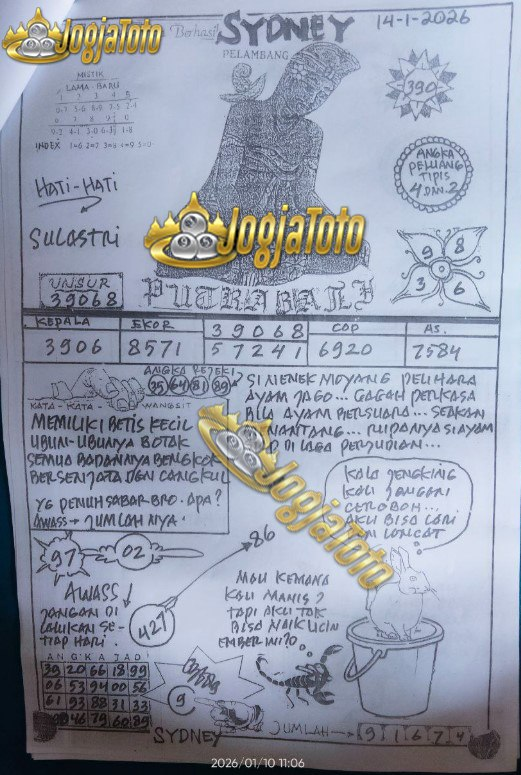 JogjaToto
Berhasil SYDNEY
14-1-2026
PELAMBANG
MISTIK
LAMA - BARU
INDEX 1=6 2=7 3=8 4=9 5=0
390
HATI-HATI
ANGKA
PELUANG
TIPIS
4 DAN 2
SULASTRI
JogjaToto
9 8
3 6
UNSUR
39068
PUTRA
KEPALA EKOR 39068 COP AS.
3906 8571 57241 6920 7584
ANGKA REJEKI
35 64 81 89
KATA - KATA - WANGSIT
MEMILIKI BETIS KECIL
UBUN-UBUNYA BOTAK
SEMUA BADANNYA BENGKOK
BERSENJATA DGN CANGKUL
YG PENUH SABAR BRO. APA?
AWASS → JUMLAH NYA.
SI NENEK MOYANG PELIHARA
AYAM JAGO... GAGAH PERKASA
BILA AYAM BERSUARA... SEAKAN
NANTANG... RUPANYA SI AYAM
DI LAGA PERJUDIAN...
JogjaToto
KALA JENGKING
KAU JANGAN
CEROBOH...
AKU BISA LARI
LONCAT
97 02 86
427
AWASS
JANGAN DI
LAKUKAN SE-
TIAP HARI.
MAU KEMANA
KAU MANIS?
TAPI AKU TAK
BISA NAIK LICIN
EMBER INI?.
ANGKA JADI
39 20 66 18 99
06 53 94 00 56
61 93 88 31 33
46 79 60 89
9
SYDNEY
JUMLAH → 9 1 6 7 4
2026/01/10 11:06